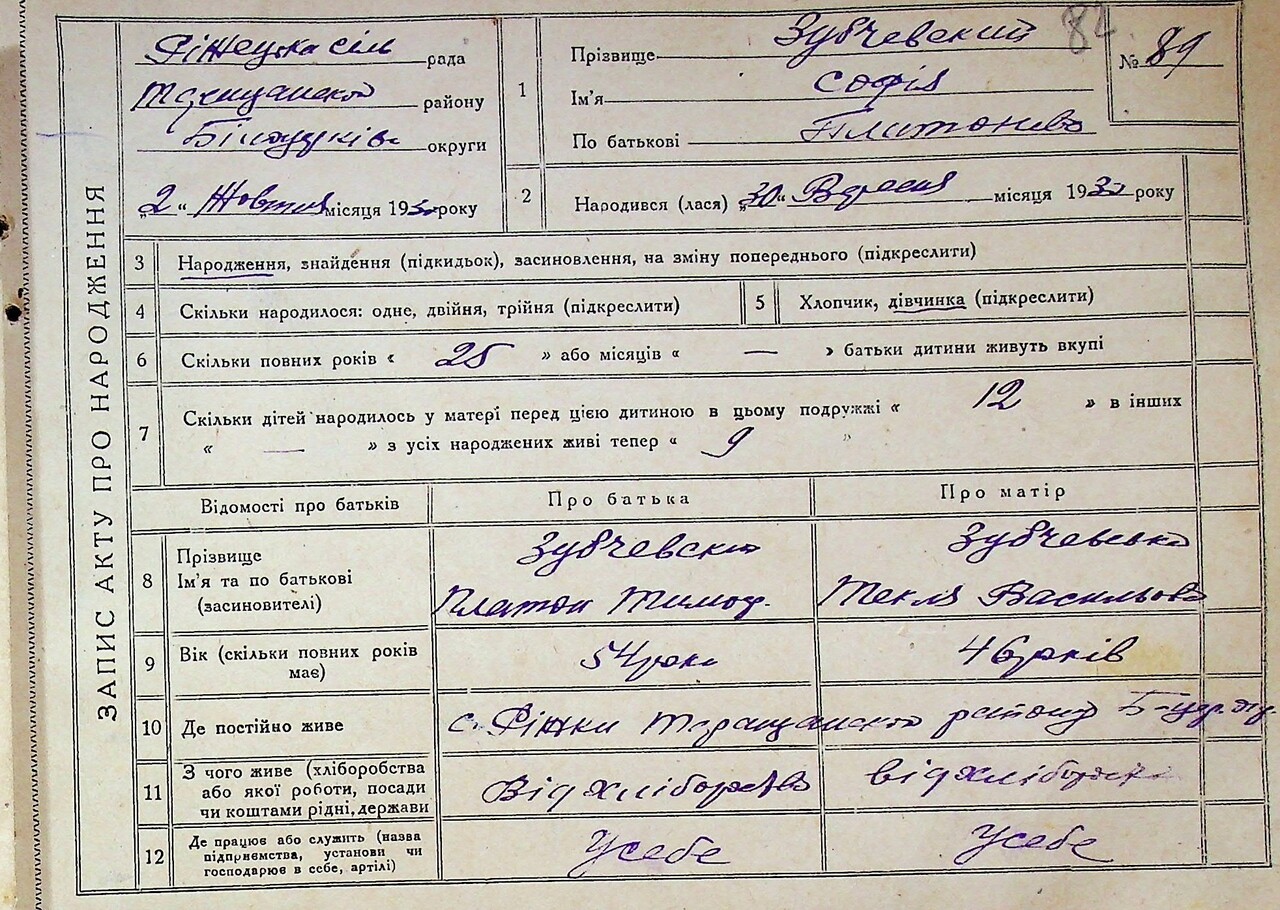 ЗАПИС АКТУ ПРО НАРОДЖЕННЯ
82
№ 89
Ріжецька сіл рада
Таращанского району
Білоцерків округи
„2“ Жовтня місяця 1930 року
1
Прізвище Зубчевский
Ім'я Софія
По батькові Платонов
2
Народився (лася) „30“ Вересня місяця 1930 року
3 Народження, знайдення (підкидьок), засиновлення, на зміну попереднього (підкреслити)
4 Скільки народилося: одне, двійня, трійня (підкреслити)
5 Хлопчик, дівчинка (підкреслити)
6 Скільки повних років « 25 » або місяців « — » батьки дитини живуть вкупі
7 Скільки дітей народилось у матері перед цією дитиною в цьому подружжі « 12 » в інших
« — » з усіх народжених живі тепер « 9 »
Відомості про батьків Про батька Про матір
8 Прізвище
Ім'я та по батькові
(засиновителі)
Зубчевский
Платон Тимоф.
Зубчевська
Текля Васильова
9 Вік (скільки повних років
має)
54 роки
46 років
10 Де постійно живе
с. Ріжки Таращанского району
11 З чого живе (хліборобства
або якої роботи, посади
чи коштами рідні, держави
Від хліборобства
від хліборобства
12 Де працює або служить (назва
підприємства, установи чи
господарює в себе, артілі)
Усебе
Усебе